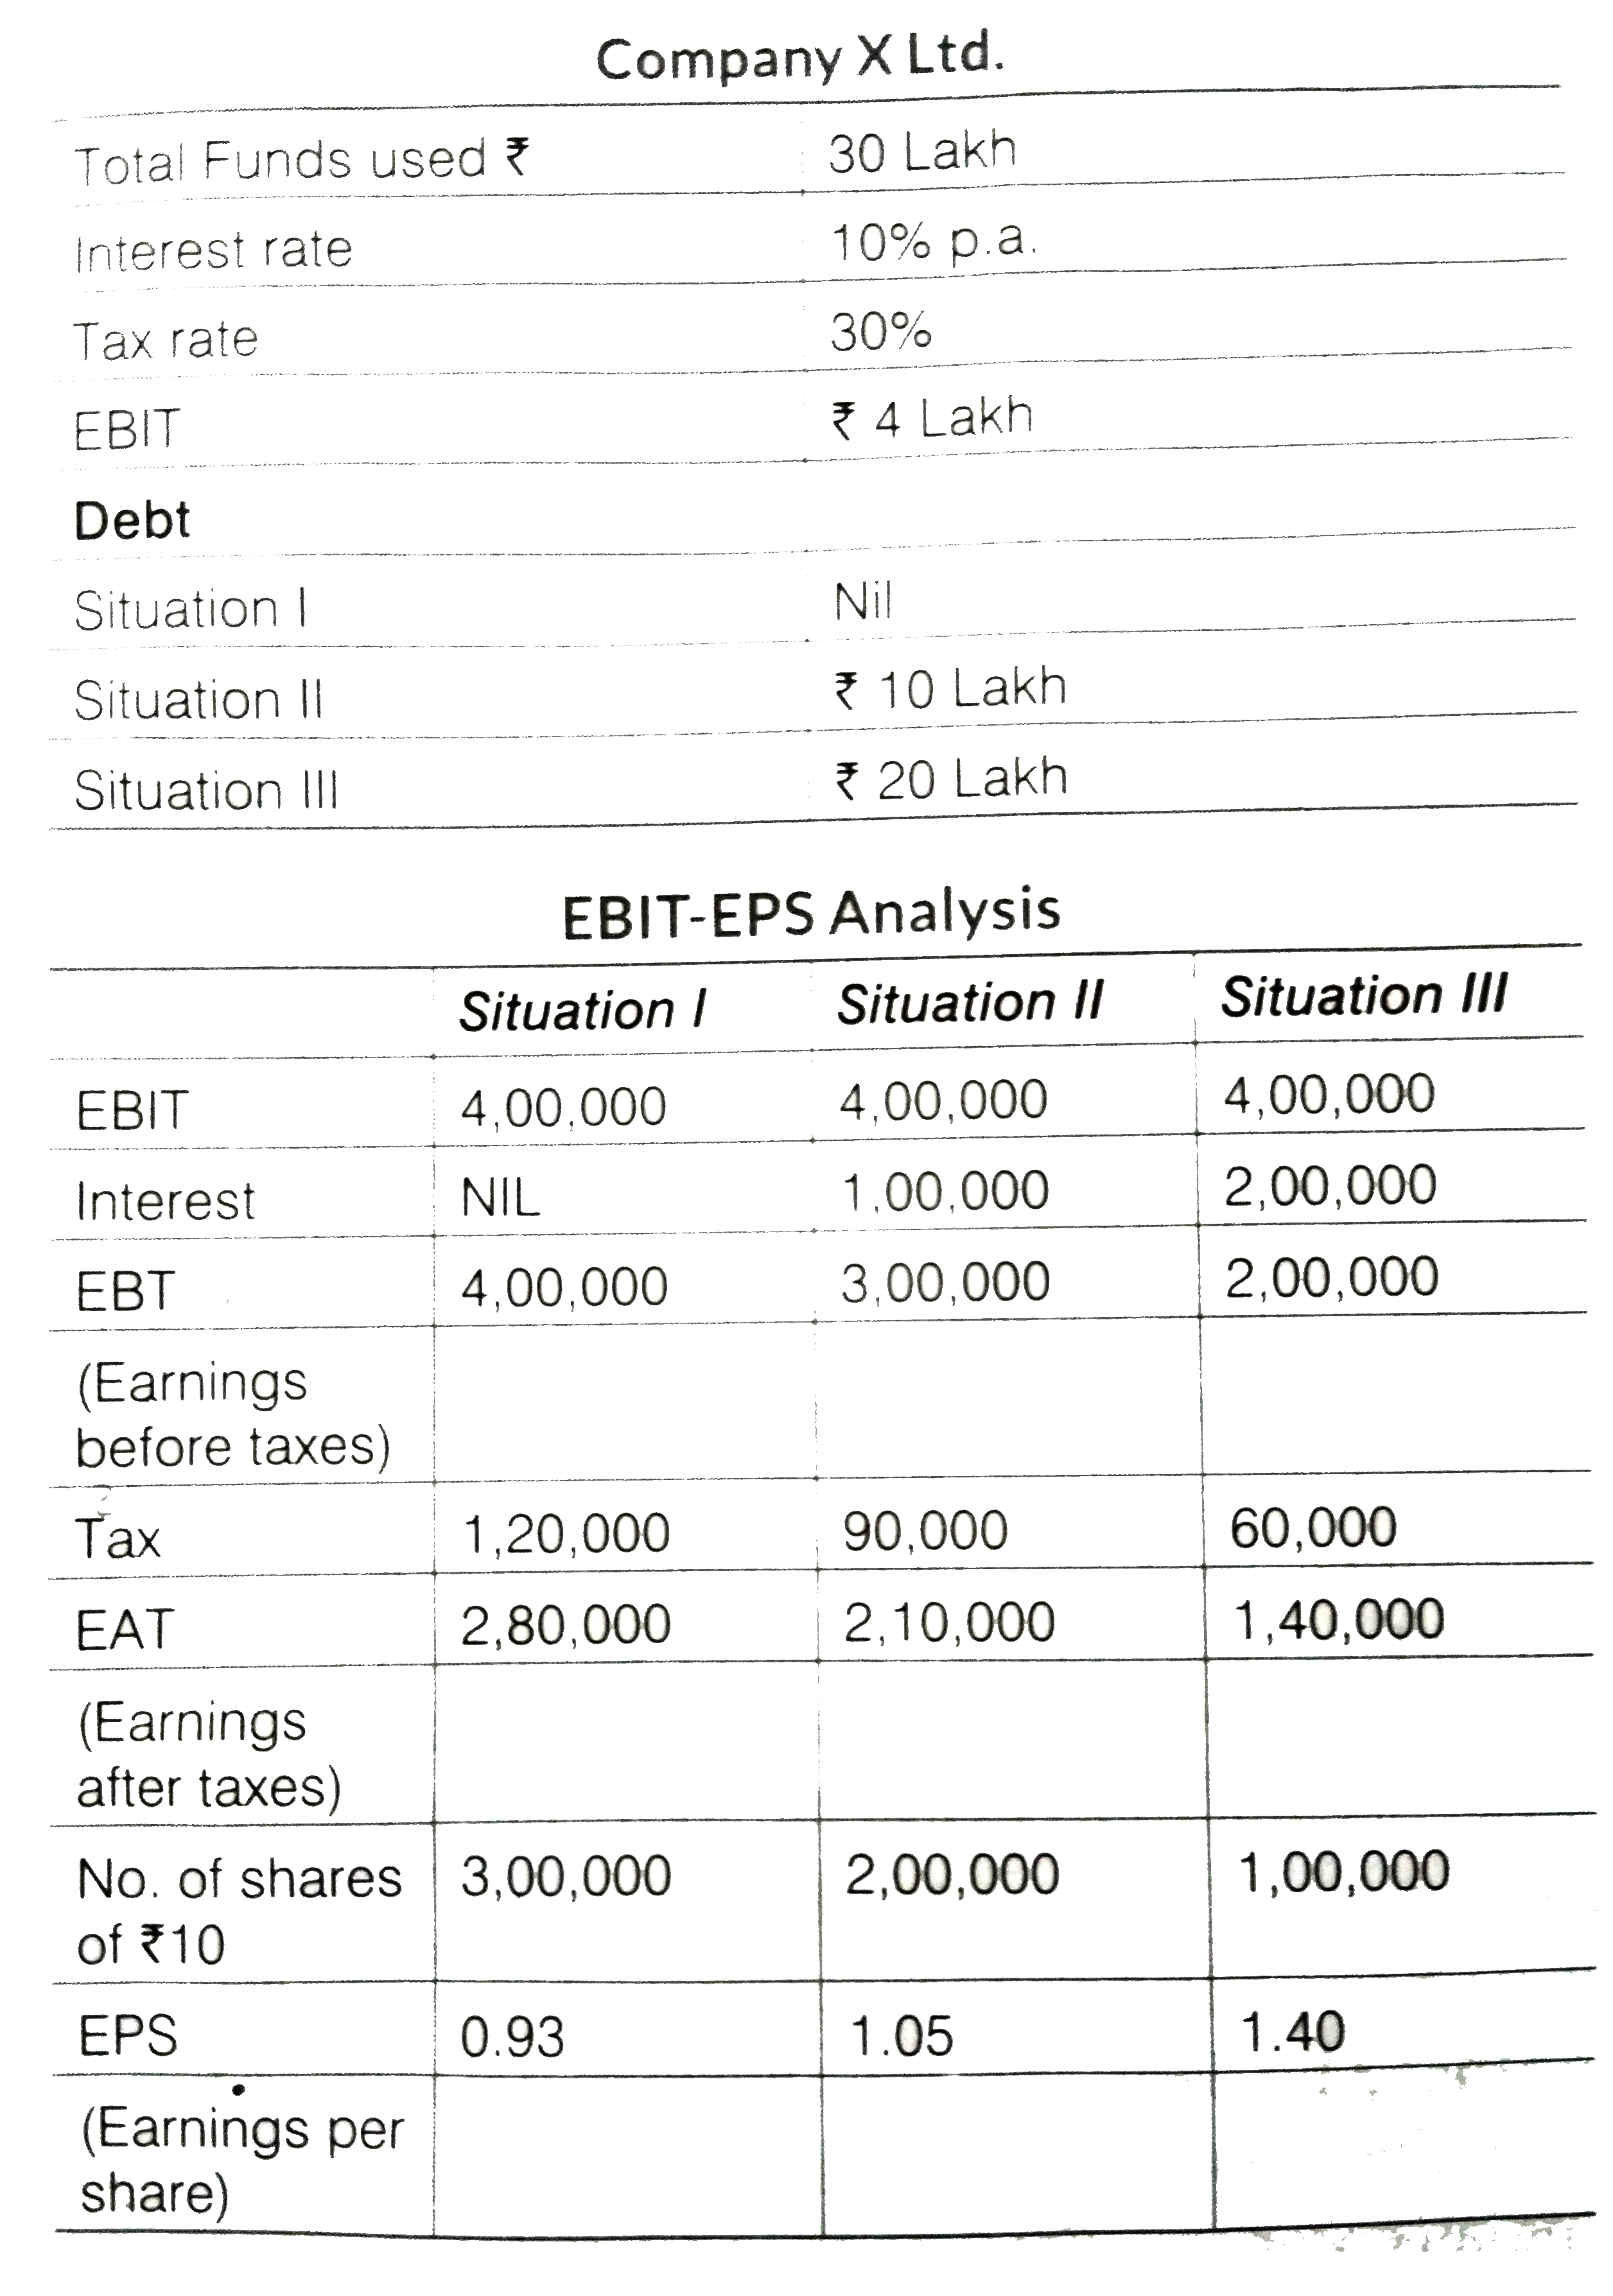 Company X Ltd.
Total Funds used ₹ 30 Lakh
Interest rate 10% p.a.
Tax rate 30%
EBIT ₹ 4 Lakh
Debt
Situation I Nil
Situation II ₹ 10 Lakh
Situation III ₹ 20 Lakh
EBIT-EPS Analysis
Situation I Situation II Situation III
EBIT 4,00,000 4,00,000 4,00,000
Interest NIL 1,00,000 2,00,000
EBT 4,00,000 3,00,000 2,00,000
(Earnings
before taxes)
Tax 1,20,000 90,000 60,000
EAT 2,80,000 2,10,000 1,40,000
(Earnings
after taxes)
No. of shares 3,00,000 2,00,000 1,00,000
of ₹10
EPS 0.93 1.05 1.40
(Earnings per
share)